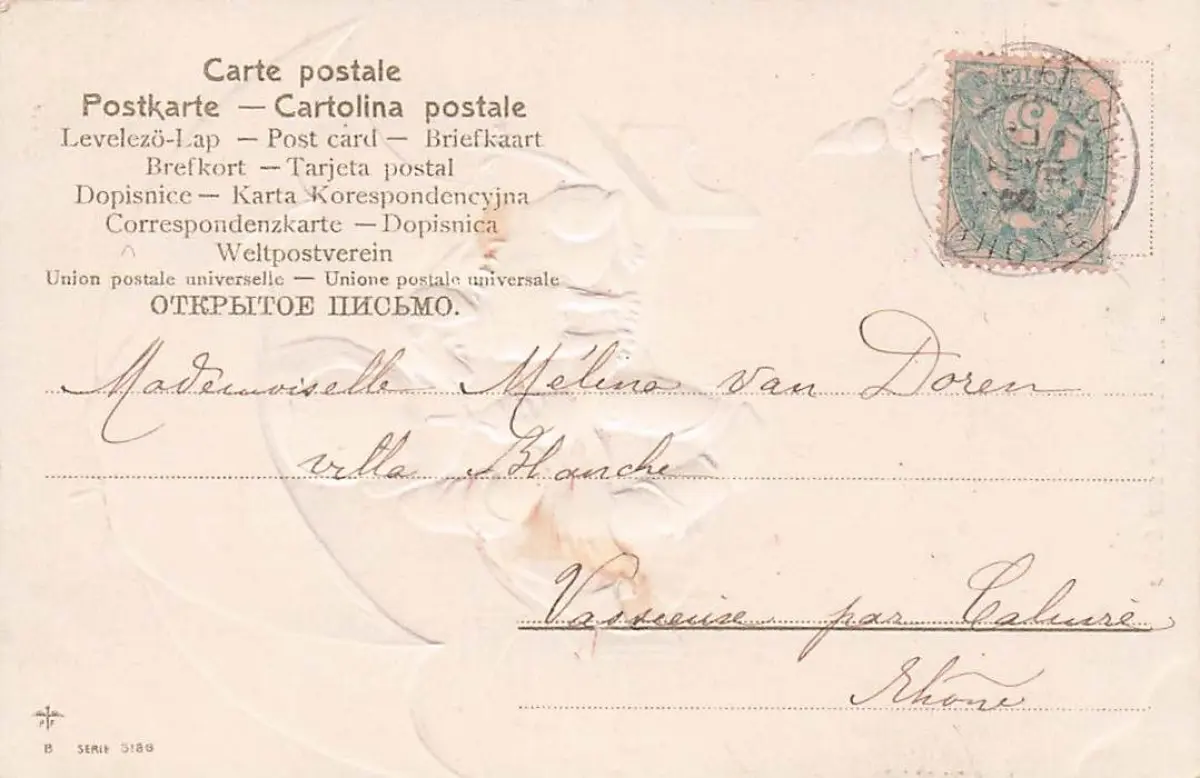 Carte postale
Postkarte — Cartolina postale
Levelező-Lap — Post card — Briefkaart
Brefkort — Tarjeta postal
Dopisnice — Karta Korespondencyjna
Correspondenzkarte — Dopisnica
Weltpostverein
Union postale universelle — Unione postale universale
ОТКРЫТОЕ ПИСЬМО.
5
RHONE
Mademoiselle Mélina van Doren
villa Blanche
par
Rhône
B SERIE 5186